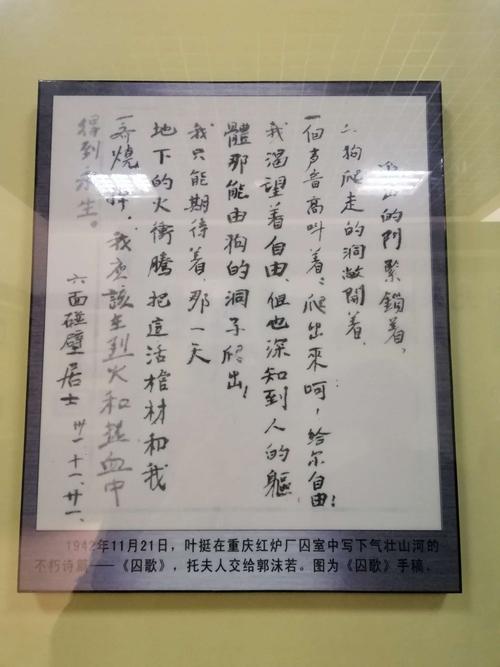 出的門緊鎖着,
狗爬走的洞敞開着,
一個声音高叫着:爬出來呵,給尔自由!
我渴望着自由,但也深知到人的軀
體那能由狗的洞子爬出!
我只能期待着,那一天
地下的火衝騰把這活棺材和我
一齊燒掉,我應該在烈火和熱血中
得到永生。
六面碰壁居士 卅一、十一、廿一、
1942年11月21日,叶挺在重庆红炉厂囚室中写下气壮山河的
不朽诗篇——《囚歌》,托夫人交给郭沫若。图为《囚歌》手稿。